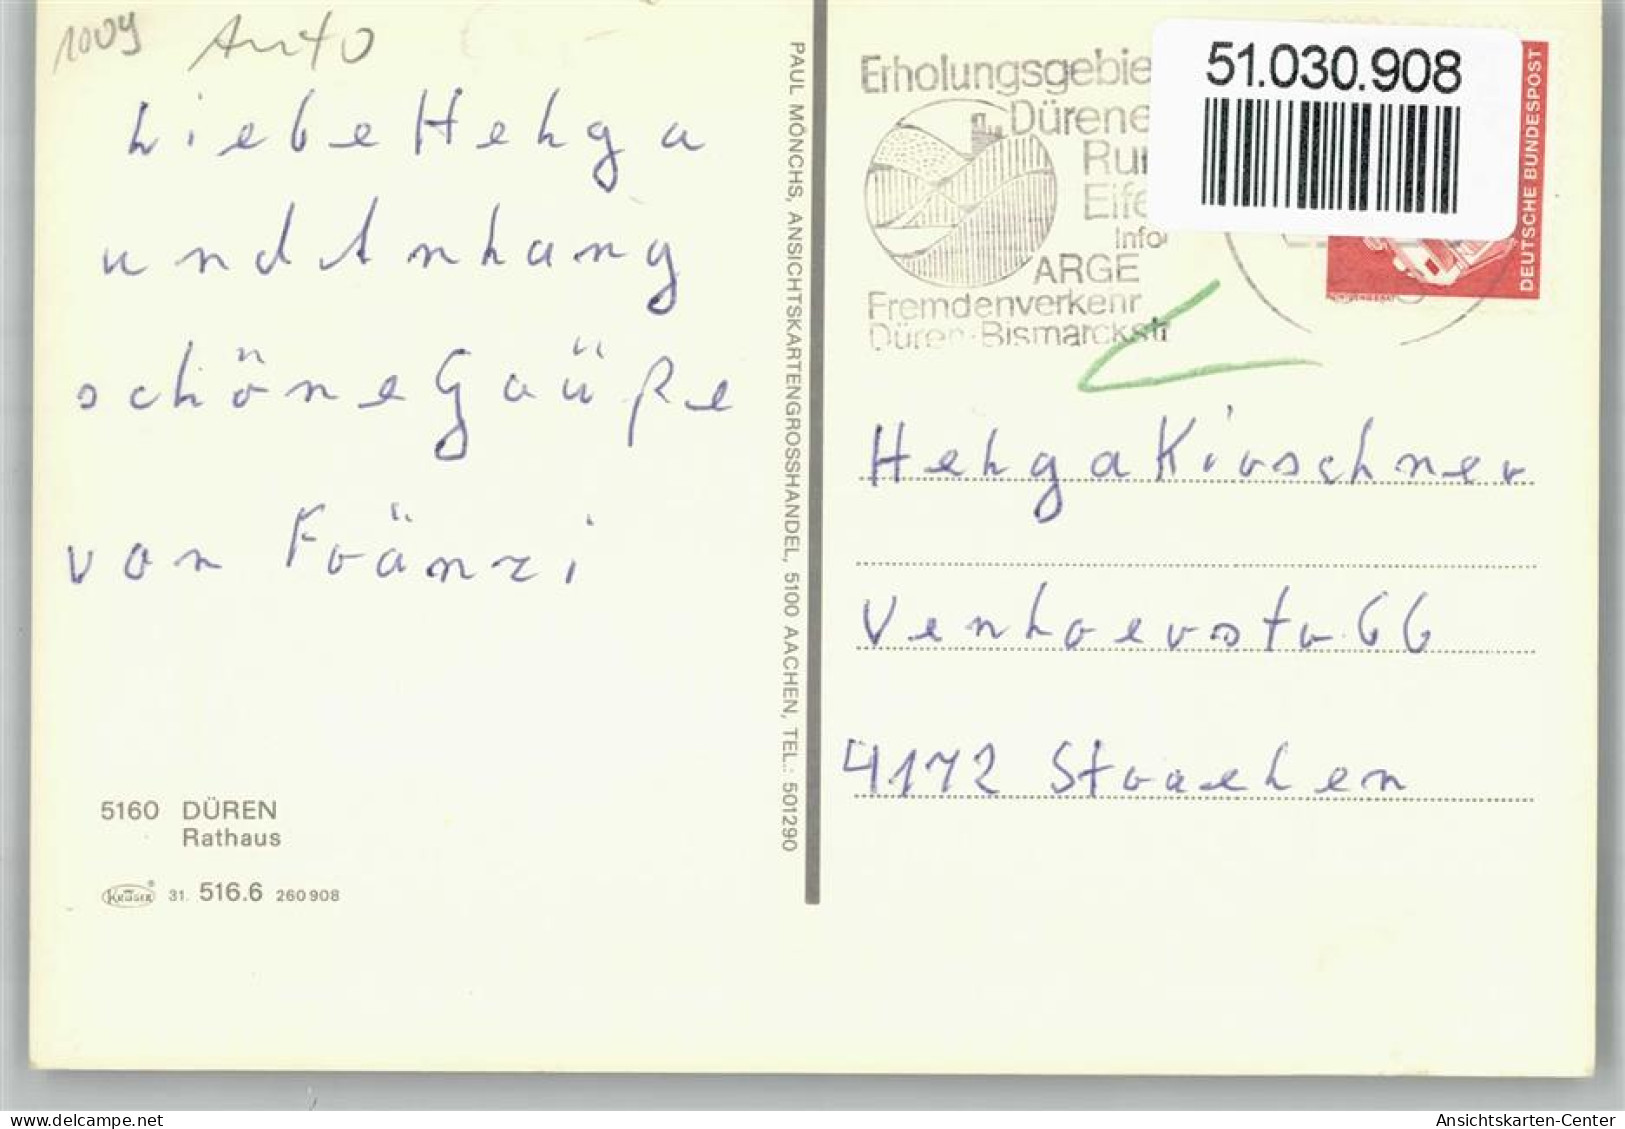 1009 Auto
Liebe Helga
und Anhang
schöne Grüße
von Fränzi
5160 DÜREN
Rathaus
KRÜGER ® 31. 516.6 260908
PAUL MÖNCHS, ANSICHTSKARTENGROSSHANDEL, 5100 AACHEN, TEL.: 501290
Erholungsgebie
Dürene
Rur
Eife
Info
ARGE
Fremdenverkehr
Düren-Bismarckstr
51.030.908
DEUTSCHE BUNDESPOST
Helga Kirschner
Venloerstr. 66
4172 Straelen
www.delcampe.net
Ansichtskarten-Center